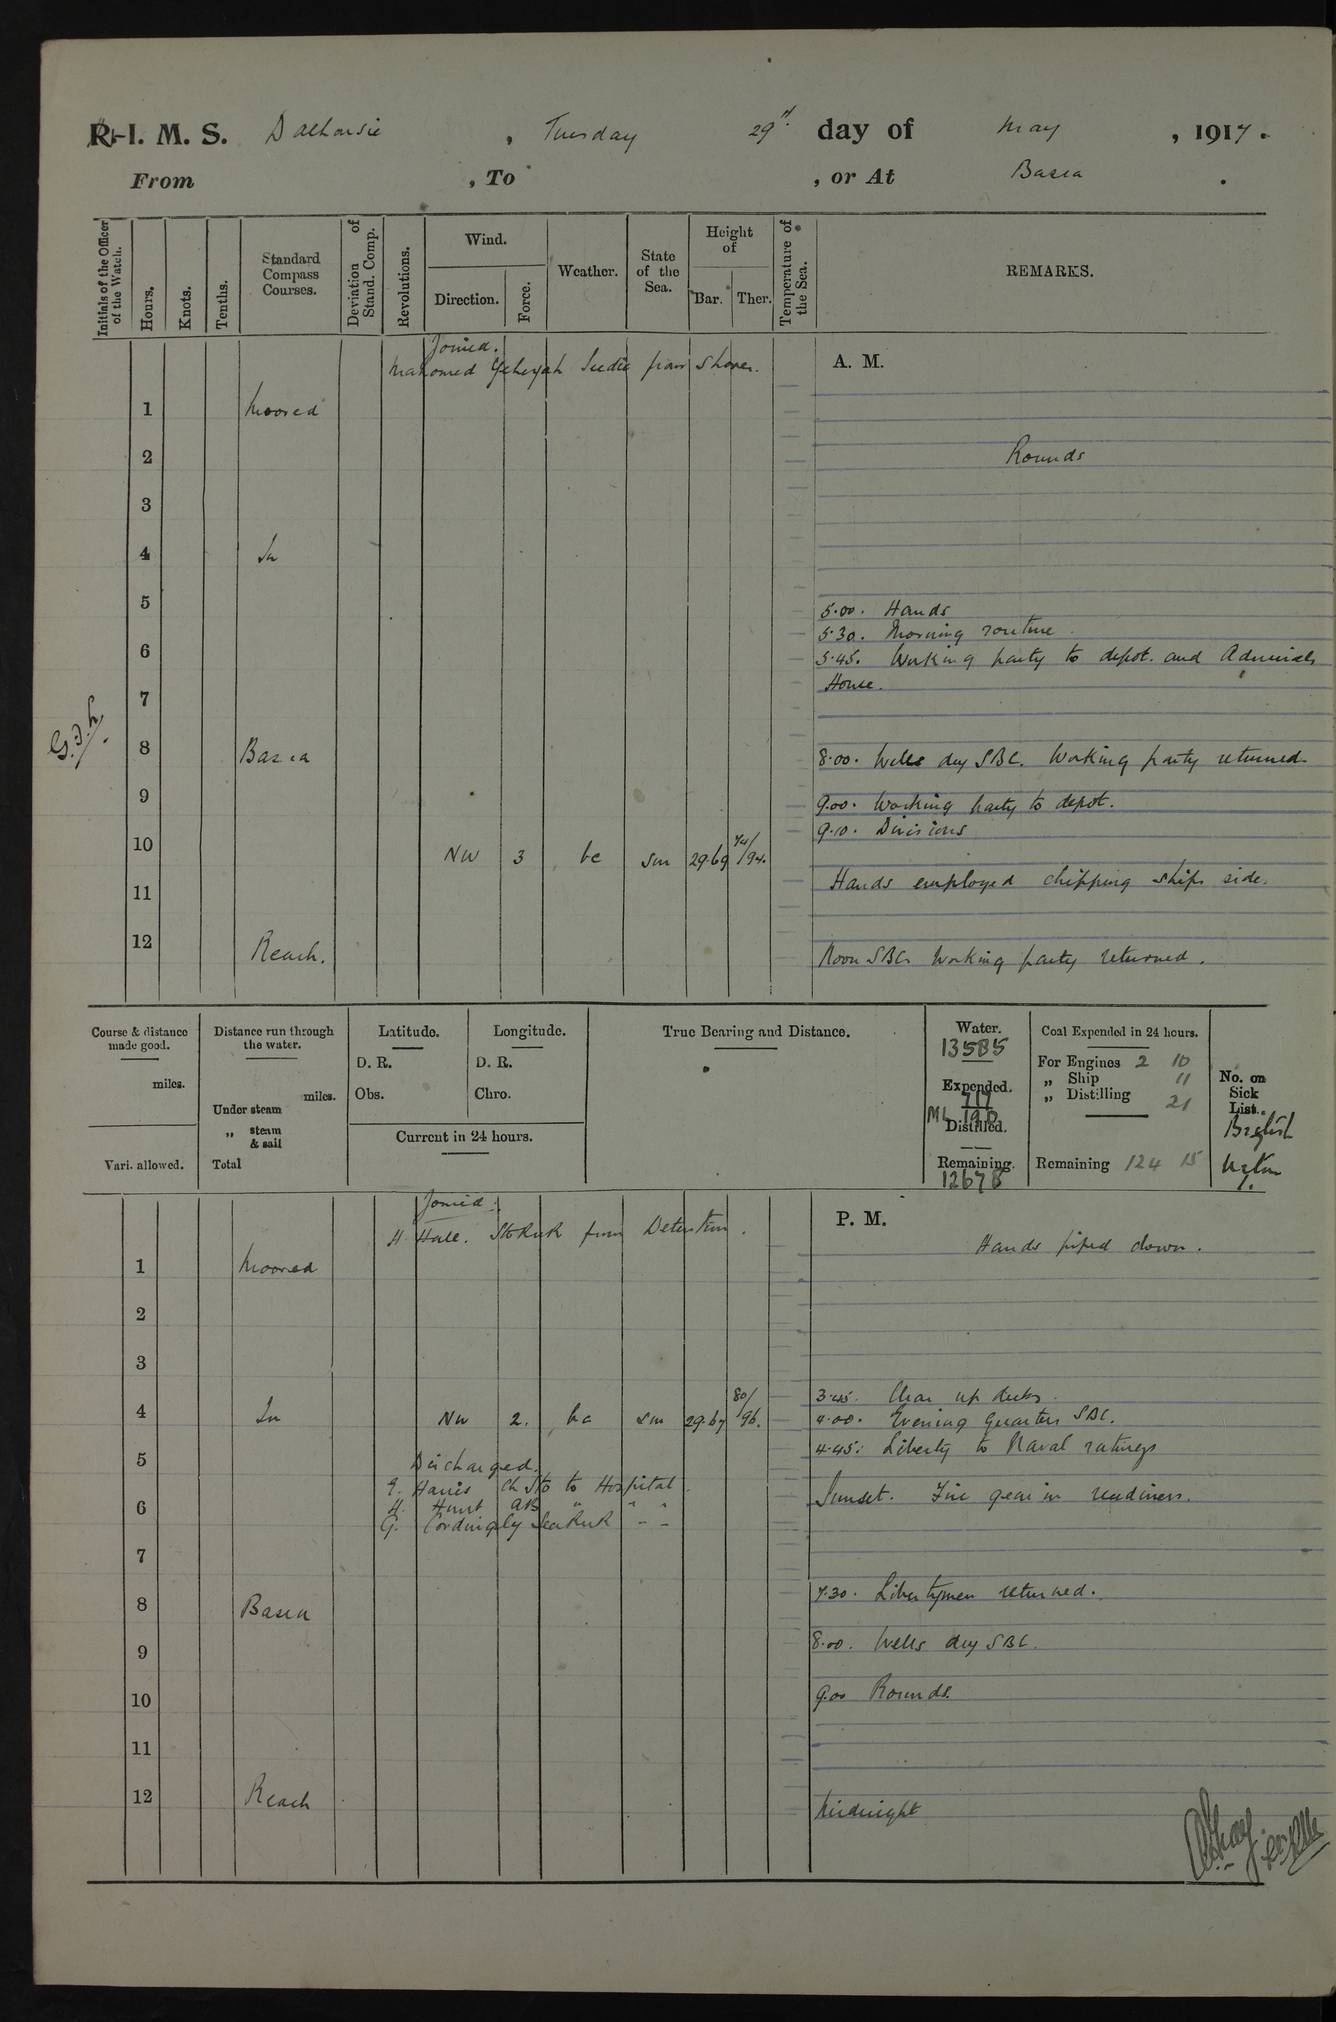 R. I. M. S. Dalhousie , Tuesday 29th day of May , 1917 .
From , To , or At Basra .
Initials of the Officer of the Watch.
Hours.
Knots.
Tenths.
Standard Compass Courses.
Deviation of Stand. Comp.
Revolutions.
Wind.
Direction.
Force.
Weather.
State of the Sea.
Height of
Bar.
Ther.
Temperature of the Sea.
REMARKS.
Joined.
Mahomed Seedie from Shore.
A. M.
1 Moored
2 Rounds
3
4 In
5 5.00. Hands
5.30. Morning routine
6 5.45. Working party to depot. and Admirals
House.
7
8 Basra 8.00. Wells dry SBC. Working party returned.
9 9.00. Working party to depot.
9.10. Divisions
10 NW 3 bc sm 29.69 74/94.
Hands employed chipping ships side.
11
12 Reach. Noon SBC. Working party returned.
Course & distance made good.
miles.
Vari. allowed.
Distance run through the water.
miles.
Under steam
„ steam & sail
Total
Latitude.
D. R.
Obs.
Longitude.
D. R.
Chro.
Current in 24 hours.
True Bearing and Distance.
Water.
13585
Expended.
717
ML 190
Distilled.
Remaining.
12678
Coal Expended in 24 hours.
For Engines 2 10
„ Ship 11
„ Distilling 21
Remaining 124 15
No. on Sick List.
British
Native
1.
Joined.
H Hall. from Detention.
P. M.
Hands piped down.
1 Moored
2
3
3.45. Clear up decks.
4 In NW 2. bc sm 29.67 80/96. 4.00. Evening Quarters SBC.
4.45. Liberty to Naval ratings
5 Discharged.
Harris Ch Sto to Hospital.
6 H. Hunt AB " " " Sunset. Fire gear in readiness.
G. Cordingly - -
7
7.30. Libertymen returned.
8 Basra
8.00. Wells dry SBC.
9
9.00 Rounds.
10
11
12 Reach Midnight